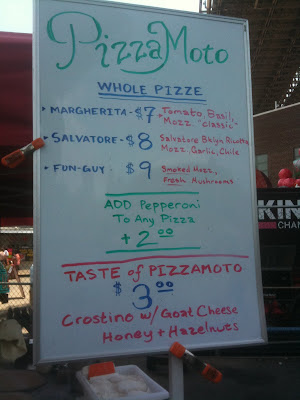 PizzaMoto
WHOLE PIZZE
• MARGHERITA - $7 Tomato, Basil,
Mozz. "classic"
• SALVATORE - $8 Salvatore Bklyn Ricotta
Mozz, Garlic, Chile
• FUN-GUY - $9 Smoked Mozz,
Fresh Mushrooms
ADD Pepperoni
To Any Pizza
+ 2.00
TASTE of PIZZAMOTO
$3.00
Crostino w/ Goat Cheese
Honey + Hazelnuts
KIN
CHAN